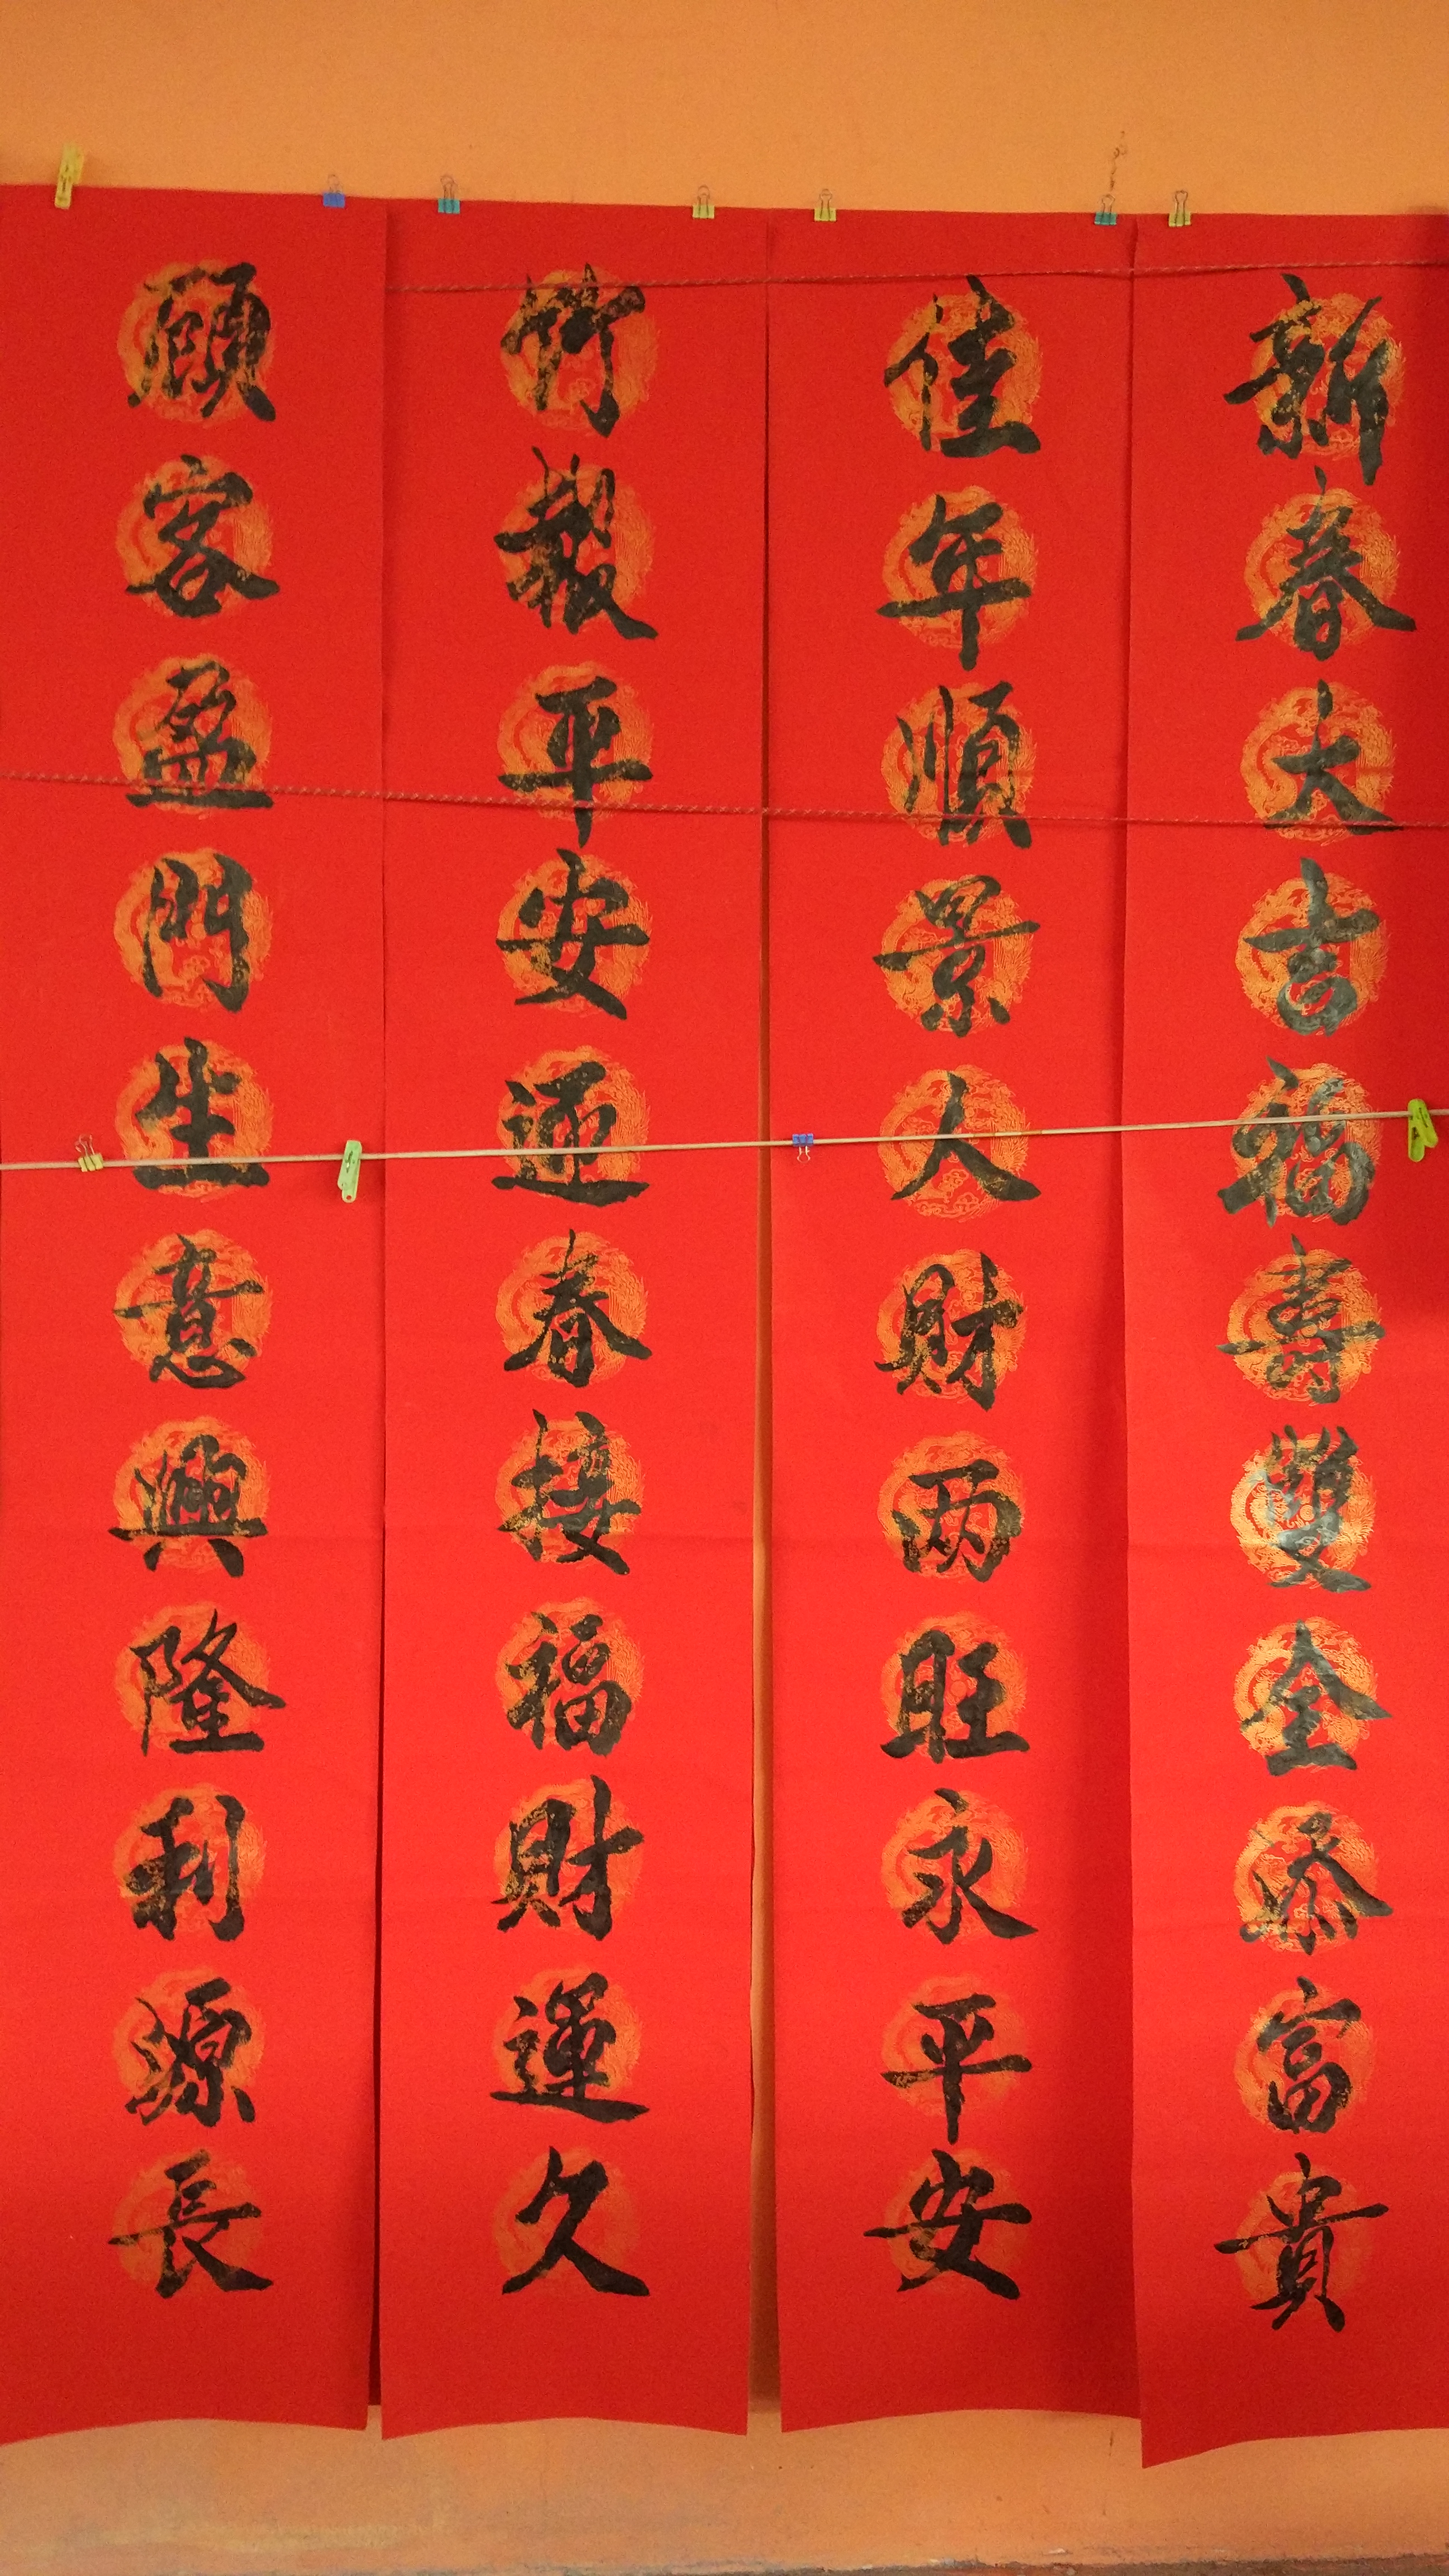 新春大吉福壽雙全添富貴
佳年順景人財两旺永平安
竹報平安迎春接福財運久
顧客盈門生意興隆利源長